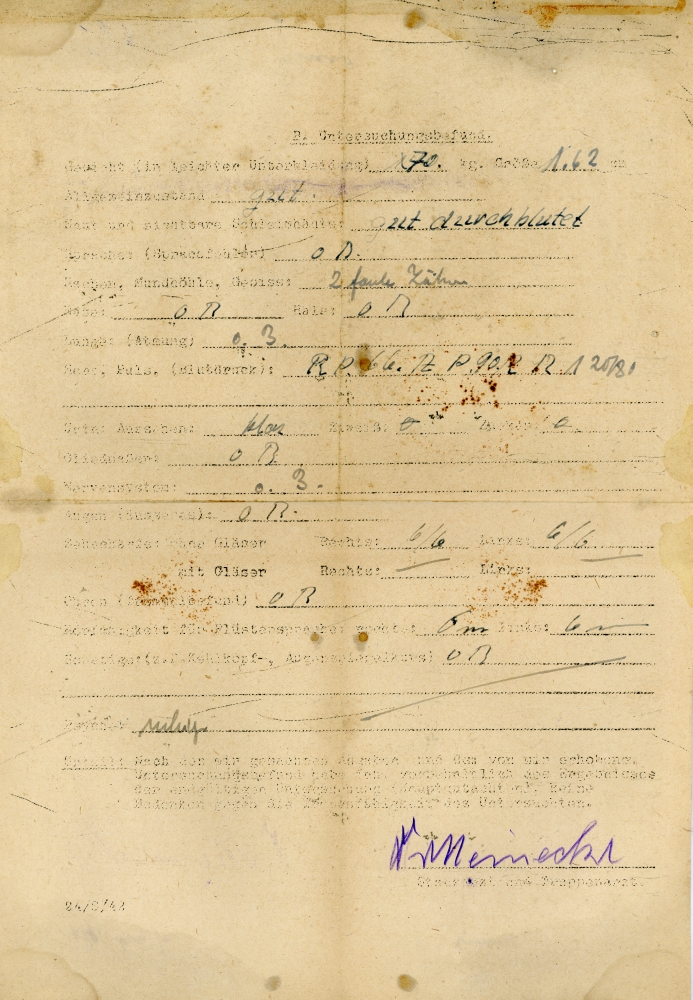 B. Untersuchungsbefund.
Gewicht (in leichter Unterkleidung) 70. kg. Größe 1.62 cm
Allgemeinzustand gut.
Haut und sichtbare Schleimhäute: gut durchblutet
Sprache: (Sprachfehler) o B.
Rachen, Mundhöhle, Gebiss: 2 faule Zähne
Nase: o B Hals: o B
Lunge: (Atmung) o. B.
Herz, Puls, (Blutdruck): R P. 66. P 90. 120/80
Urin: Aussehen: klar Eiweiß: o Zucker: o
Gliedmaßen: o B
Nervensystem: o. B.
Augen (äusseres): o B.
Sehschärfe: ohne Gläser Rechts: 6/6 Links: 6/6
mit Gläser Rechts: Links:
Ohren (Ohrenbefund) o B
Hörfähigkeit für Flüstersprache: rechts: 6m links: 6m
Sonstige: (z.B. Kehlkopf-, Augenspiegelkurs) o B
ruhig
Urteil: Nach den mir gemachten Angaben und dem von mir erhobenen
Untersuchungsbefund habe ich, vorbehaltlich des Ergebnisses
der endgültigen Untersuchung (Hauptgutachten), keine
Bedenken gegen die des Untersuchten.
Dr Meinecke
Oberarzt und Truppenarzt.